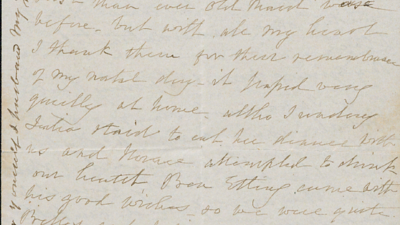 than ever old maid was
before, but with all my heart
I thank them for their remembrance
of my natal day it passed very
quietly at home altho
Julia staid to eat her dinner with
us and Horace attempted to drink
our health Ben Etting came with
his good wishes, so we were quite
yourself & husband my